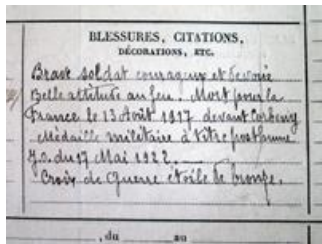 BLESSURES, CITATIONS,
DÉCORATIONS, ETC.
Brave soldat courageux et dévoué
Belle attitude au feu. Mort pour la
France le 13 Août 1917 devant Corbeny
Médaille militaire à titre posthume
J.O. du 17 Mai 1922.
Croix de Guerre étoile de bronze.
du au